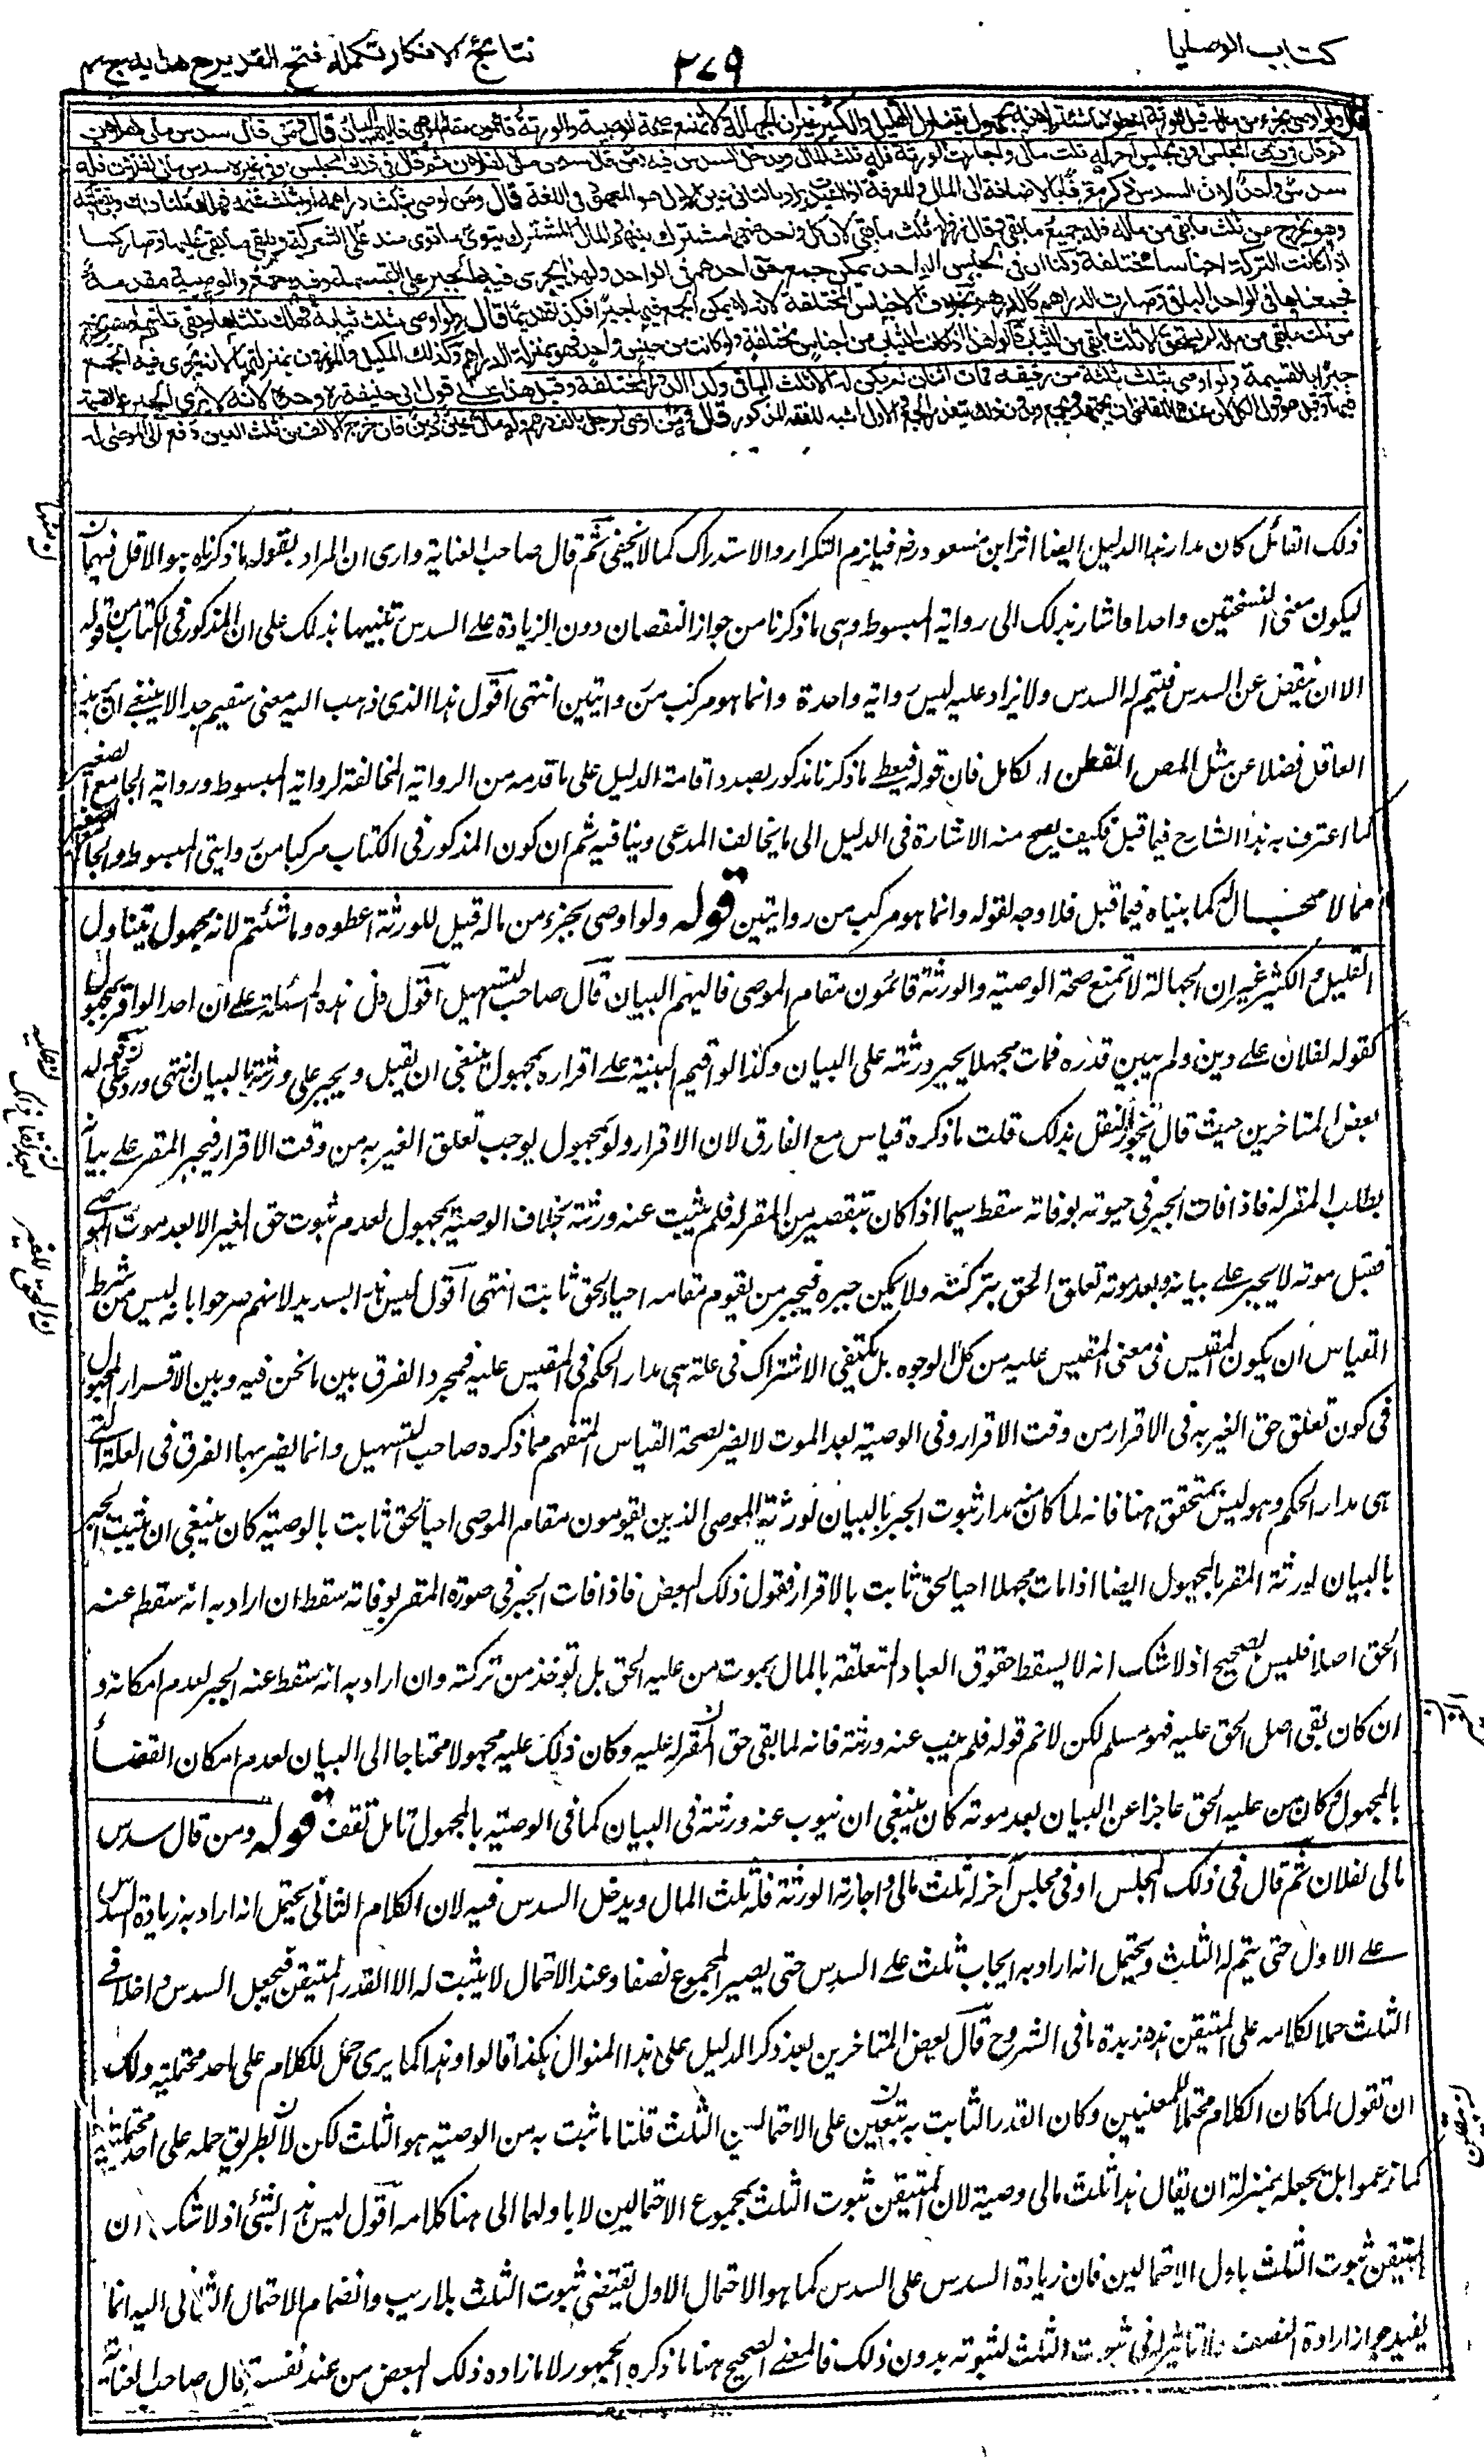 كتاب الوصايا
٢٧٩
نتائج الافكار تكملة فتح القدير مع هدايه ج
قال ولو اوصى بجزء من ماله قيل للورثة اعطوه ما شئتم لانه مجهول يتناول القليل والكثير غير ان الجهالة لا تمنع صحة الوصية والورثة قائمون مقام الموصى فاليهم البيان قال ومن قال سدس مالى لفلان
ثم قال فى ذلك المجلس او فى مجلس اخر له ثلث مالى واجازت الورثة فله ثلث المال ويدخل السدس فيه ومن قال سدس مالى لفلان ثم قال فى ذلك المجلس او فى غيره سدس مالى لفلان فله
سدس واحد لان السدس ذكر معرفا بالاضافة الى المال والمعرفة اذا اعيدت يراد بالثانى عين الاول هو المعهود فى اللغة قال ومن اوصى بثلث دراهمه او بثلث غنمه فهلك ثلثا ذلك وبقى ثلثه
وهو يخرج من ثلث ما بقى من ماله فله جميع ما بقى وقال زفر له ثلث ما بقى لان كل واحد منهما مشترك بينهم والمال المشترك يتوى ما توى منه على الشركة ويبقى ما بقى عليها وصار كما
اذا كانت التركة اجناسا مختلفة ولنا ان فى الجنس الواحد يمكن جمع حق احدهم فى الواحد ولهذا يجرى فيه الجبر على القسمة وفيه جمع والوصية مقدمة
فجمعناها فى الواحد الباقى وصارت الدراهم كالدرهم بخلاف الاجناس المختلفة لانه لا يمكن الجمع فيها جبرا فكذا تقديما قال ولو اوصى بثلث ثيابه فهلك ثلثاها وبقى ثلثها وهو يخرج
من ثلث ما بقى من ماله لم يستحق الا ثلث ما بقى من الثياب قالوا هذا اذا كانت الثياب من اجناس مختلفة ولو كانت من جنس واحد فهو بمنزلة الدراهم وكذلك المكيل والموزون بمنزلتها لانه يجرى فيه الجمع
جبرا بالقسمة ولو اوصى بثلث ثلثة من رقيقه فمات اثنان لم يكن له الا ثلث الباقى وكذا الدور المختلفة وقيل هذا على قول ابى حنيفة ره وحده لانه لا يرى الجبر على القسمة
فيها وقيل هو قول الكل لان عندهما للقاضى ان يجتهد ويجمع وبدون ذلك يتعذر الجمع والاول اشبه للفقه المذكور قال ومن اوصى لرجل بالف درهم وله مال عين ودين فان خرج الالف من ثلث العين دفع الى الموصى له
ذلك القائل كان مدار هذا الدليل ايضا اثر ابن مسعود رض فيلزم التكرار والاستدراك كما لا يخفى ثم قال صاحب العناية وارى ان المراد بقوله ما ذكرناه هو الاقل فيهما
ليكون معنى النسختين واحدا فاشار بذلك الى رواية المبسوط وهى ما ذكرنا من جواز النقصان دون الزيادة على السدس تنبيها بذلك على ان المذكور فى الكتاب من قوله
الا ان ينقص عن السدس فيتم له السدس ولا يزاد عليه ليس رواية واحدة وانما هو مركب من روايتين انتهى اقول هذا الذى ذهب اليه معنى سقيم جدا لا ينبغى ان
العاقل فضلا عن مثل المص الفطن الكامل فان قوله فيعطى ما ذكرنا مذكور بصدد اقامة الدليل على ما قدمه من الرواية المخالفة لرواية المبسوط ورواية الجامع الصغير
كما اعترف به هذا الشارح فيما قبل فكيف يصح منه الاشارة فى الدليل الى ما يخالف المدعى وينافيه ثم ان كون المذكور فى الكتاب مركبا من روايتى المبسوط والجامع الصغير
مما لا مجال له كما بيناه فيما قبل فلا وجه لقوله وانما هو مركب من روايتين قوله ولو اوصى بجزء من ماله قيل للورثة اعطوه ما شئتم لانه مجهول يتناول
القليل والكثير غير ان الجهالة لا تمنع صحة الوصية والورثة قائمون مقام الموصى فاليهم البيان قال صاحب التسهيل اقول دل هذه المسئلة على ان احدا لو اقر بمجهول
كقوله لفلان على دين ولم يبين قدره فمات مجهلا يجبر ورثته على البيان وكذا لو اقيم البينة على اقراره بمجهول ينبغى ان يقبل ويجبر على ورثته بالبيان انتهى ورد عليه
بعض المتاخرين حيث قال بذلك قلت ما ذكره قياس مع الفارق لان الاقرار ولو بمجهول يوجب تعلق الغير به من وقت الاقرار فيجبر المقر على بيانه
بطلب المقر له فاذا فات الجبر فى حيوته بوفاته سقط سيما اذا كان بتقصير من المقر له فلم ينب عنه ورثته بخلاف الوصية بمجهول لعدم ثبوت حق الغير الا بعد موت الموصى
فقبل موته لا يجبر على بيانه وبعد موته تعلق الحق بتركته ولا يمكن جبره فيجبر من يقوم مقامه احياء لحق ثابت انتهى اقول ليس هذا بسديد لانهم صرحوا بانه ليس من شرط
القياس ان يكون المقيس فى معنى المقيس عليه من كل الوجوه بل يكتفى الاشتراك فى علة هى مدار الحكم فى المقيس عليه فمجرد الفرق بين ما نحن فيه وبين الاقرار المجهول
فى كون تعلق حق الغير به فى الاقرار من وقت الاقرار وفى الوصية بعد الموت لا يضر بصحة القياس المتفهم مما ذكره صاحب التسهيل وانما يضر بها الفرق فى العلة التى
هى مدار الحكم وهو ليس بمتحقق هنا فانه لما كان مدار ثبوت الجبر بالبيان لورثة الموصى الذين يقومون مقام الموصى احياء لحق ثابت بالوصية كان ينبغى ان يثبت الجبر
بالبيان لورثة المقر بالمجهول ايضا اذا مات مجهلا احياء لحق ثابت بالاقرار فقول ذلك البعض فاذا فات الجبر فى صورة المقر بوفاته سقط ان اراد به انه سقط عنه
الحق اصلا فليس بصحيح اذ لا شك انه لا يسقط حقوق العباد المتعلقة بالمال بموت من عليه الحق بل يؤخذ من تركته وان اراد به انه سقط عنه الجبر لعدم امكانه و
ان كان بقى اصل الحق عليه فهو مسلم لكن لا نم قوله فلم ينب عنه ورثته فانه لما بقى حق المقر له عليه وكان ذلك عليه مجهولا محتاجا الى البيان لعدم امكان القضاء
بالمجهول وكان من عليه الحق عاجزا عن البيان بعد موته كان ينبغى ان ينوب عنه ورثته فى البيان كما فى الوصية بالمجهول تامل تقف قوله ومن قال سدس
مالى لفلان ثم قال فى ذلك المجلس او فى مجلس اخر له ثلث مالى واجازته الورثة فله ثلث المال ويدخل السدس فيه لان الكلام الثانى يحتمل انه اراد به زيادة السدس
على الاول حتى يتم له الثلث ويحتمل انه اراد به ايجاب ثلث على السدس حتى يصير المجموع نصفا وعند الاحتمال لا يثبت له الا القدر المتيقن فيجعل السدس داخلا فى
الثلث حملا لكلامه على المتيقن هذه زبدة ما فى الشروح قال بعض المتاخرين بعد ذكر الدليل على هذا المنوال هكذا قالوا وهذا كما يرى حمل للكلام على احد محتمليه ولك
ان تقول لما كان الكلام محتملا للمعنيين وكان القدر الثابت به بتعين على الاحتمالين الثلث قلنا ما ثبت به من الوصية هو الثلث لكن لا بطريق حمله على احد محتمليه
كما زعموا بل بجعله بمنزلة ان يقال هذا ثلث مالى وصية لان المتيقن ثبوت الثلث بمجموع الاحتمالين لا باولهما الى هنا كلامه اقول ليس هذا بشئ اذ لا شك ان
المتيقن ثبوت الثلث باول الاحتمالين فان زيادة السدس على السدس كما هو الاحتمال الاول يقتضى ثبوت الثلث بلا ريب وانضمام الاحتمال الثانى اليه انما
يفيد جواز ارادة النصف ولا تاثير له فى ثبوت الثلث لثبوته بدون ذلك فالمعنى الصحيح هنا ما ذكره الجمهور لا ما زاده ذلك البعض من عند نفسه قال صاحب العناية